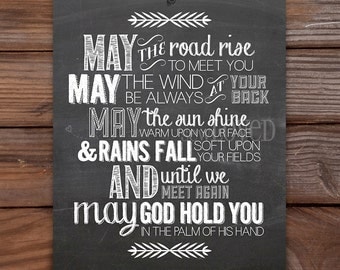 MAY THE road rise
TO MEET YOU
MAY THE WIND
BE ALWAYS AT YOUR BACK
MAY the sun shine
WARM UPON YOUR FACE
& RAINS FALL SOFT UPON YOUR FIELDS
AND until we
MEET AGAIN
may GOD HOLD YOU
IN THE PALM OF HIS HAND